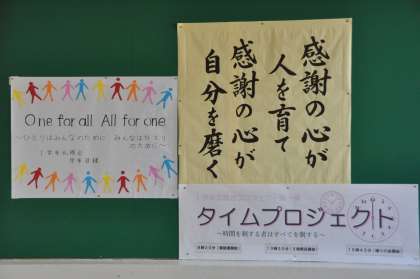 One for all All for one
～ひとりはみんなのために みんなは独りのために～
感謝の心が
人を育て
感謝の心が
自分を磨く
タイムプロジェクト
～時間を制する者はすべてを制する～